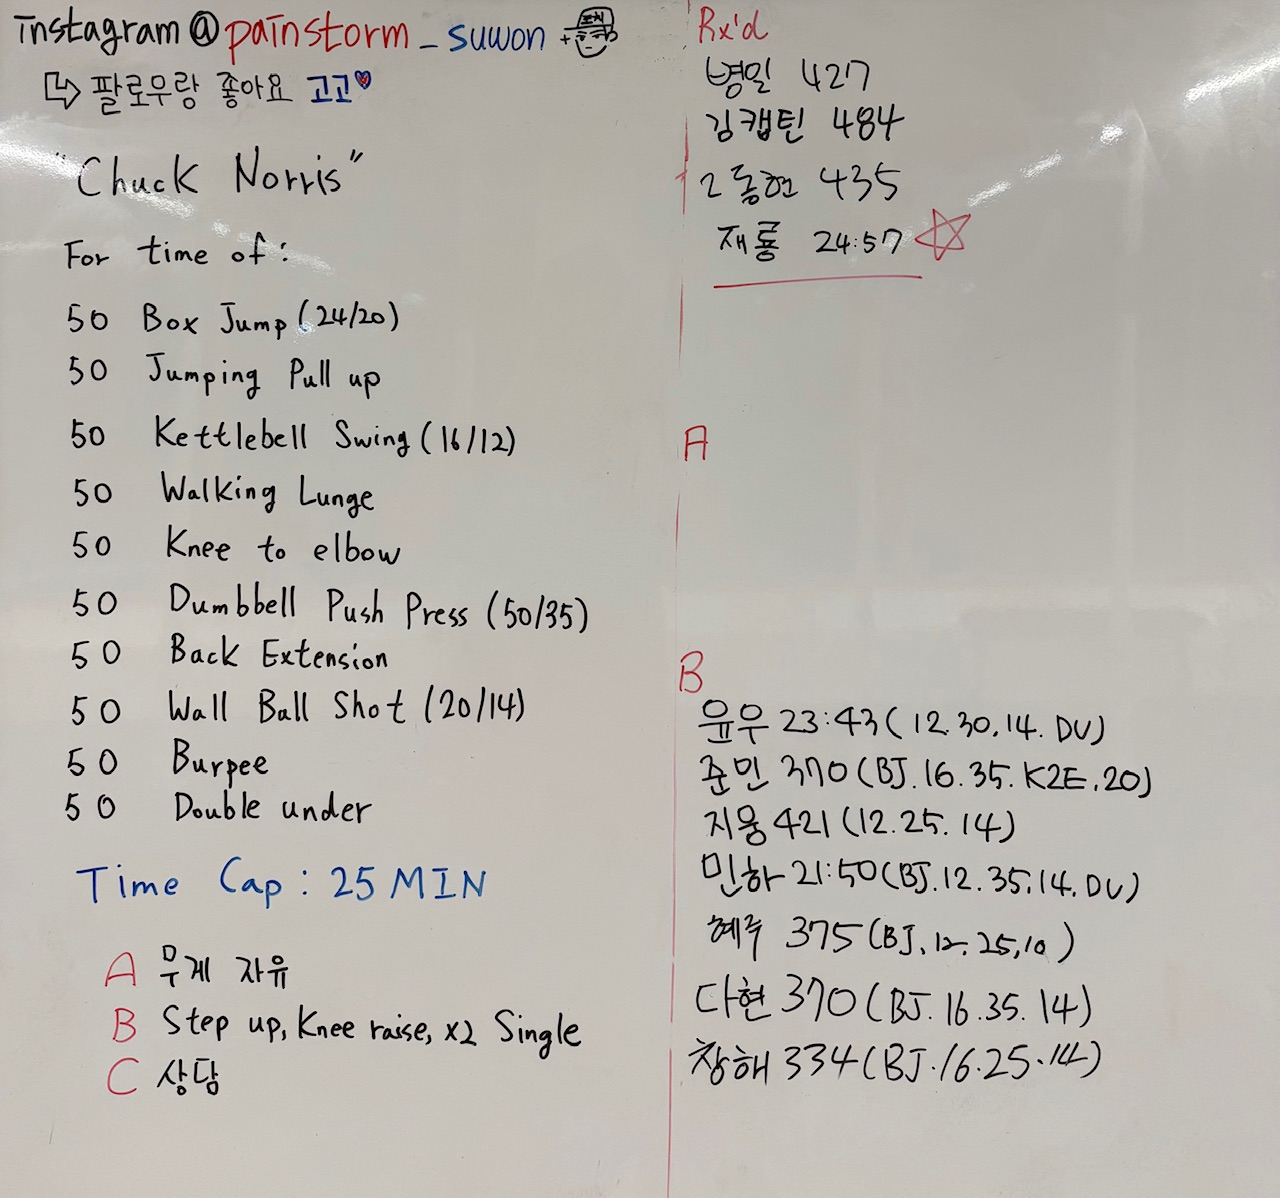 instagram @ painstorm_suwon + 코치
팔로우랑 좋아요 고고
"Chuck Norris"
For time of :
50 Box Jump (24/20)
50 Jumping Pull up
50 Kettlebell Swing (16/12)
50 Walking Lunge
50 Knee to elbow
50 Dumbbell Push Press (50/35)
50 Back Extension
50 Wall Ball Shot (20/14)
50 Burpee
50 Double under
Time Cap : 25 MIN
A 무게 자유
B Step up, Knee raise, x2 Single
C 상담
Rx'd
병일 427
김캡틴 484
2동현 435
재룡 24:57
A
B
윤우 23:43 (12.30.14. DU)
준민 370 (BJ.16.35.K2E.20)
지웅 421 (12.25.14)
민하 21:50 (BJ.12.35.14.DU)
혜주 375 (BJ.12.25.10)
다현 370 (BJ.16.35.14)
창해 334 (BJ.16.25.14)